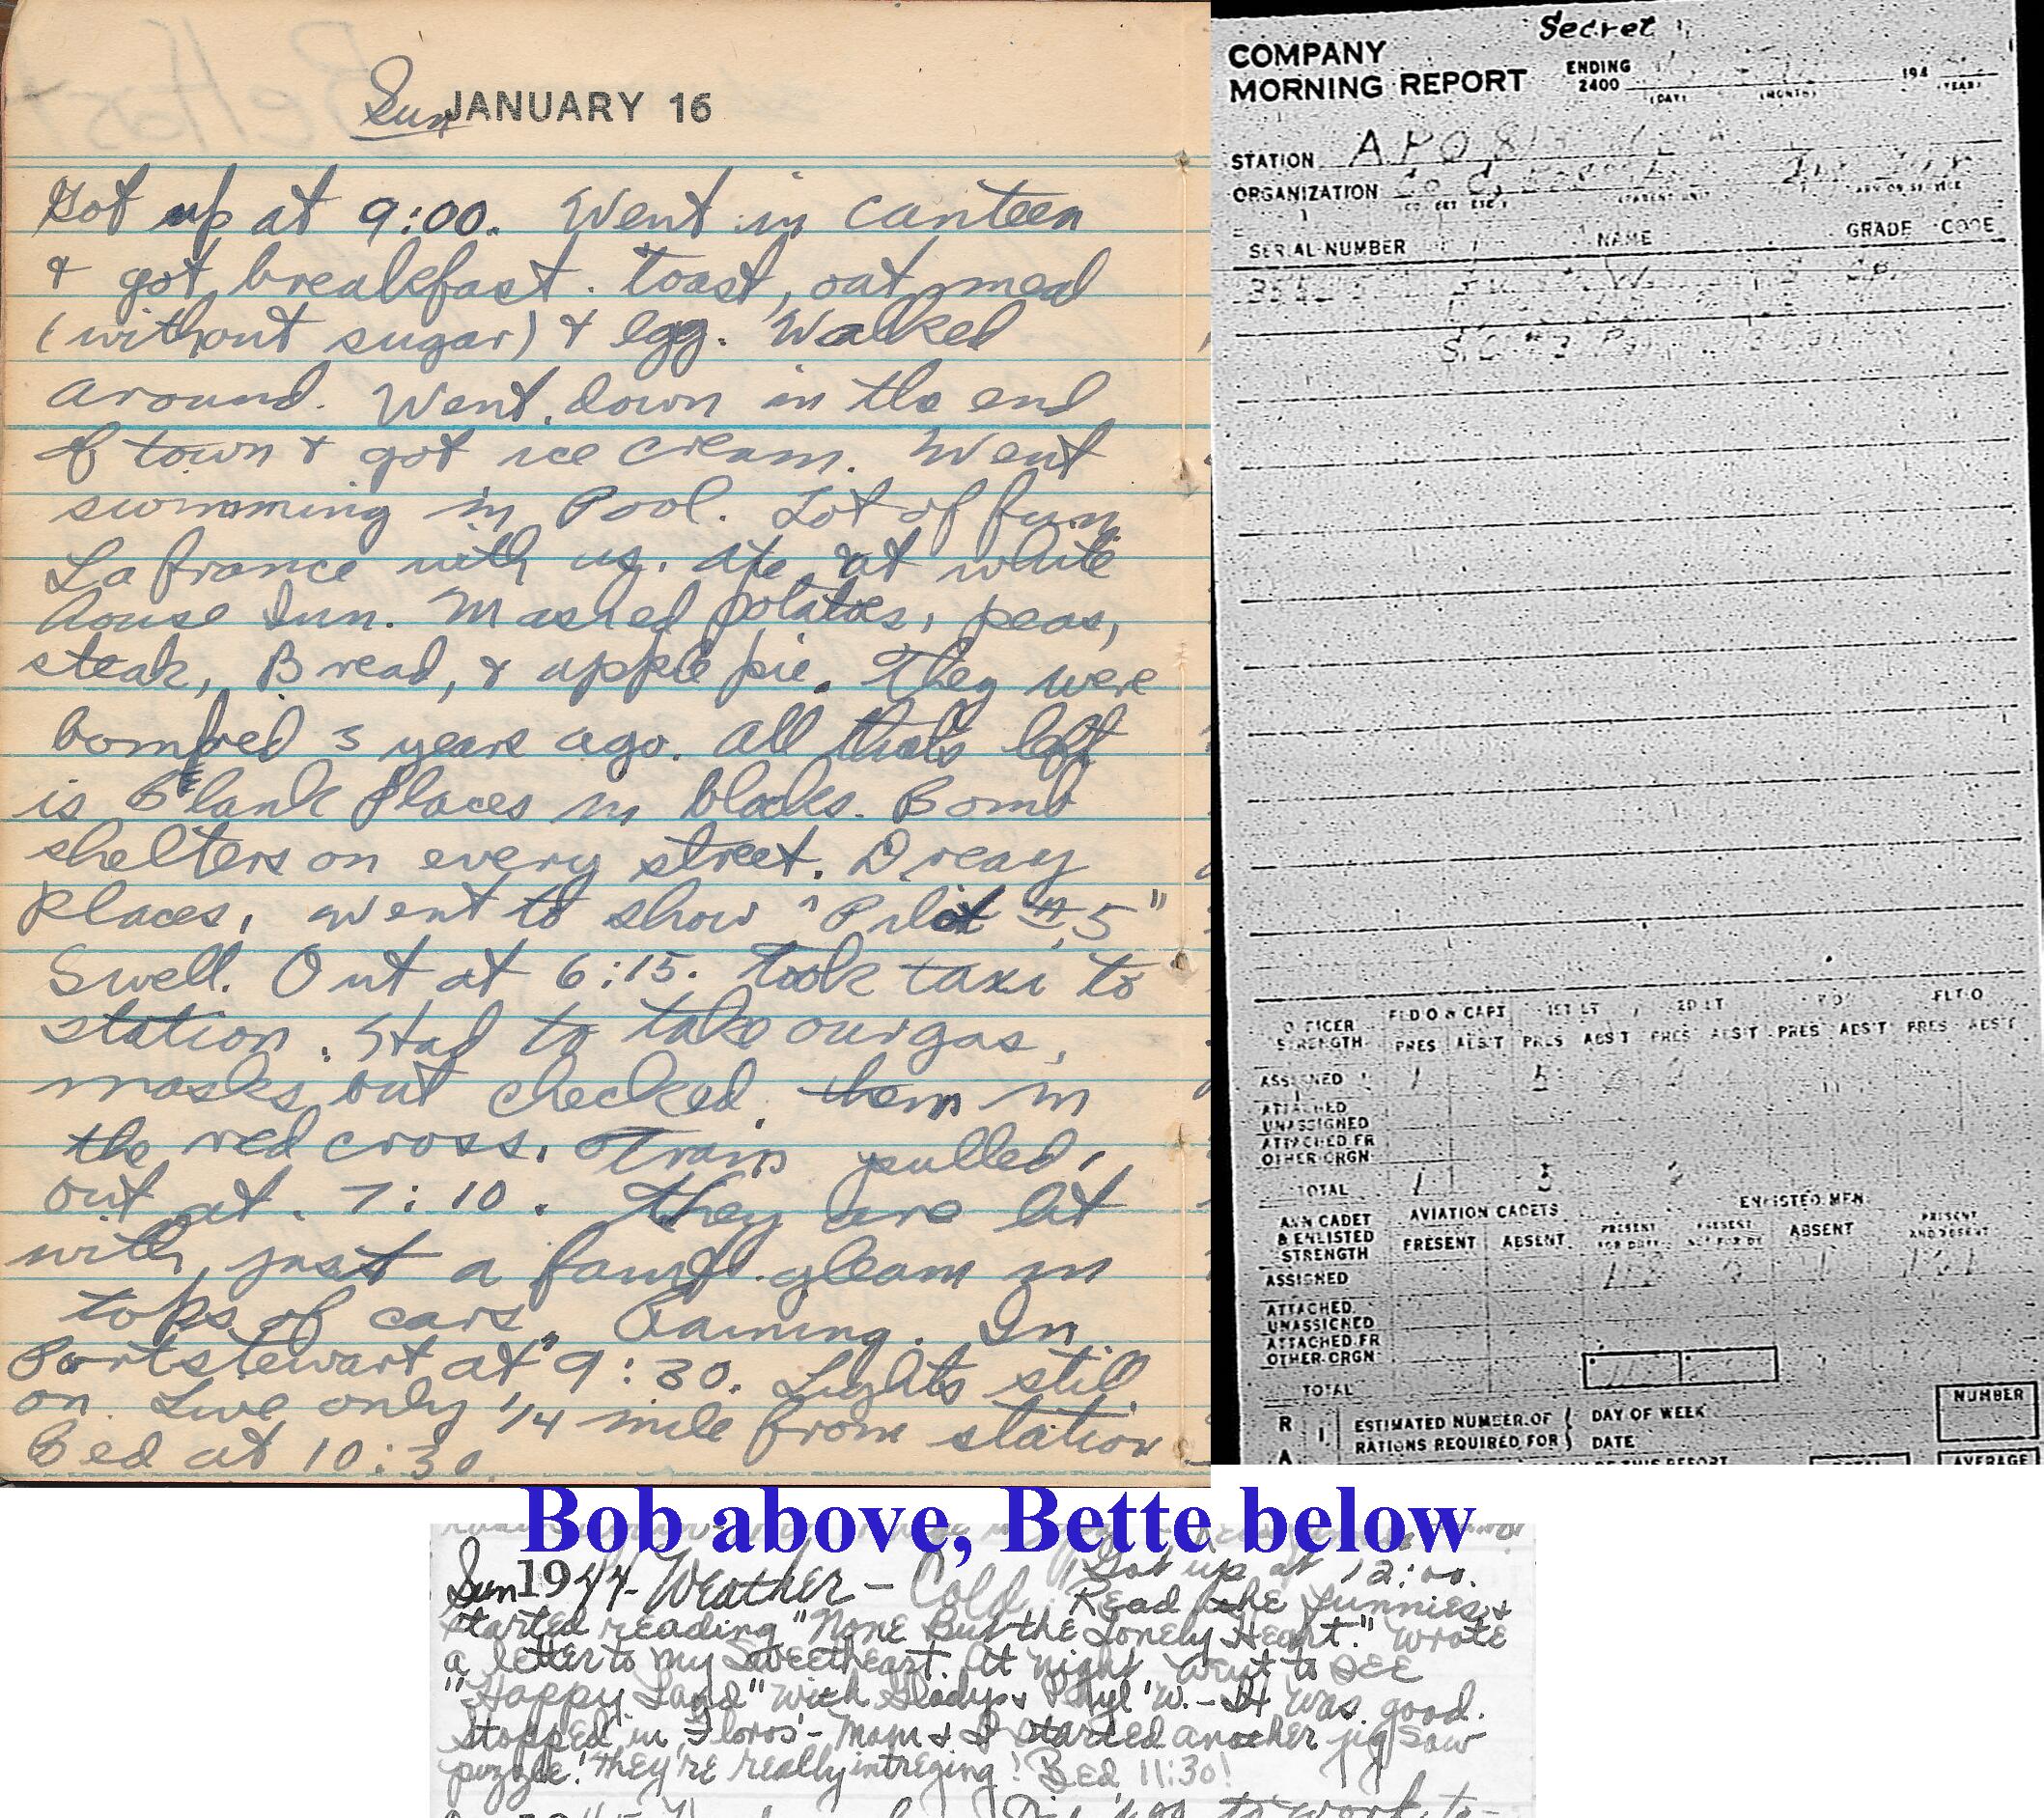 Sun JANUARY 16
Got up at 9:00. Went in canteen
& got breakfast. toast, oat meal
(without sugar) & egg. Walked
around. Went down in the end
of town & got ice cream. Went
swimming in Pool. Lot of fun
La france with us. Ate at white
house Inn. Mashed potatoes, peas,
steak, Bread, & apple pie. They were
bombed 3 years ago. All thats left
is Blank places in blocks. Bomb
shelters on every street. Dreay
Places. Went to show "Pilot #5"
Swell. Out at 6:15. Took taxi to
station. Had to take our gas
masks but checked them in
the red cross. Train pulled
out at 7:10. They are lit
with just a faint gleam in
tops of cars. Raining. In
Portstewart at 9:30. Lights still
on. Live only 1/4 mile from station
Bed at 10:30.
Secret
COMPANY
MORNING REPORT
ENDING
2400
(DAY) (MONTH) 194 (YEAR)
STATION APO 813
ORGANIZATION Co C,
SERIAL NUMBER NAME GRADE CODE
OFFICER
STRENGTH
FLD O & CAPT 1ST LT 2D LT W O FLT O
PRES ABS'T PRES ABS'T PRES ABS'T PRES ABS'T PRES ABS'T
ASSIGNED 1 5
ATTACHED
UNASSIGNED
ATTACHED FR
OTHER ORGN
TOTAL 1 5
AVN CADET
& ENLISTED
STRENGTH
AVIATION CADETS ENLISTED MEN
PRESENT ABSENT PRESENT FOR DUTY PRESENT NOT FOR DY ABSENT PRESENT AND ABSENT
ASSIGNED
ATTACHED
UNASSIGNED
ATTACHED FR
OTHER ORGN
TOTAL
R
A
ESTIMATED NUMBER OF
RATIONS REQUIRED FOR
DAY OF WEEK
DATE
NUMBER
AVERAGE
Bob above, Bette below
Sun 1944 - Weather - Cold. Got up at 12:00.
Read the funnies &
started reading "None But the Lonely Heart." Wrote
a letter to my Sweetheart. At night went to see
"Happy Land" with Gladys & Phyl W. - It was good.
Stopped in Floros' - Mom & I started another jig saw
puzzle! They're really intreging! Bed 11:30!